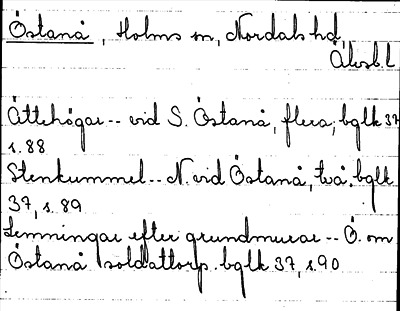 Östanå, Holms sn, Nordals hd
Älvsb.l
Ättehögar -- vid S. Östanå, flera; bglk 37
s. 88
Stenkummel -- N. vid Östanå, två. bglk
37, s. 89
Lemningar efter grundmurar -- Ö. om
Östanå soldattorp. bglk 37, s. 90